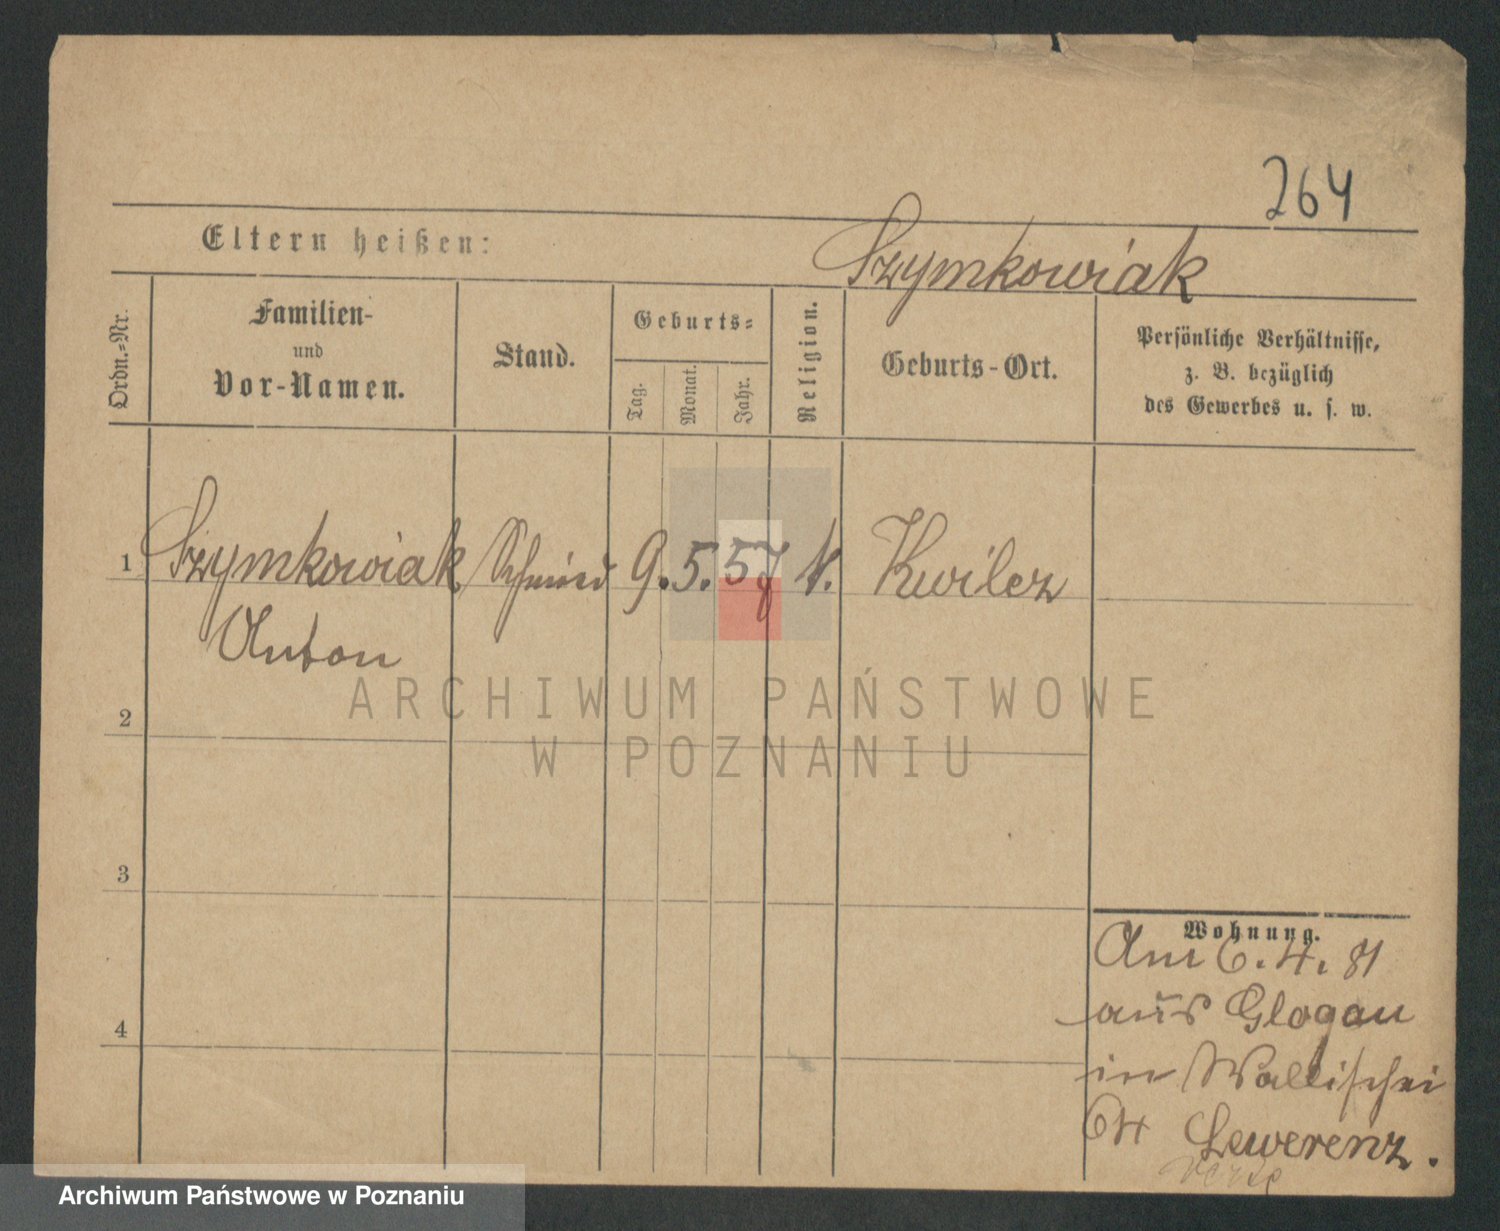 264
Eltern heißen:
Szymkowiak
Ordn.-Nr.
Familien-
und
Vor-Namen.
Stand.
Geburts-
Tag.
Monat.
Jahr.
Religion.
Geburts-Ort.
Persönliche Verhältnisse,
z. B. bezüglich
des Gewerbes u. s. w.
1 Szymkowiak Schmied 9. 5. 57 k. Kwilcz
Anton
ARCHIWUM PAŃSTWOWE
W POZNANIU
2
3
4
Wohnung.
Am 6. 4. 81
aus Glogau
in Wallischei
64 Lewerenz.
verte
Archiwum Państwowe w Poznaniu